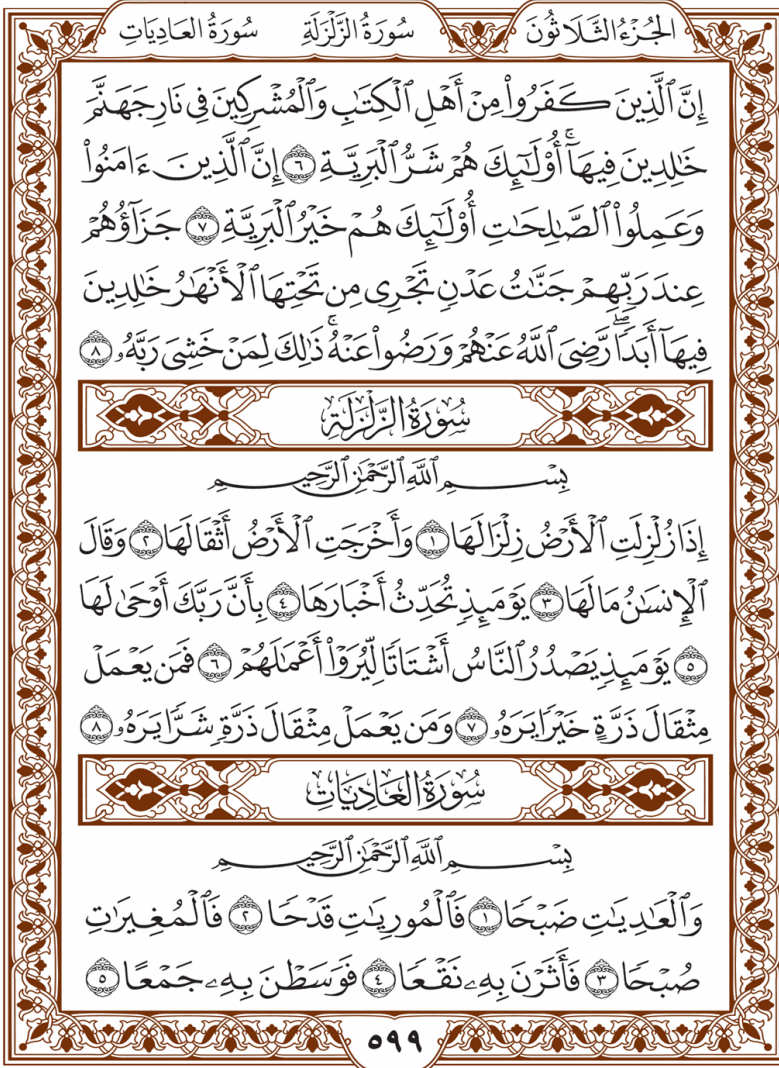 الجُزْءُ الثَّلَاثُونَ سُورَةُ الزَّلْزَلَةِ سُورَةُ العَادِيَاتِ
إِنَّ ٱلَّذِينَ كَفَرُوا۟ مِنْ أَهْلِ ٱلْكِتَٰبِ وَٱلْمُشْرِكِينَ فِى نَارِ جَهَنَّمَ
خَٰلِدِينَ فِيهَآۚ أُو۟لَٰٓئِكَ هُمْ شَرُّ ٱلْبَرِيَّةِ ٦ إِنَّ ٱلَّذِينَ ءَامَنُوا۟
وَعَمِلُوا۟ ٱلصَّٰلِحَٰتِ أُو۟لَٰٓئِكَ هُمْ خَيْرُ ٱلْبَرِيَّةِ ٧ جَزَآؤُهُمْ
عِندَ رَبِّهِمْ جَنَّٰتُ عَدْنٍ تَجْرِى مِن تَحْتِهَا ٱلْأَنْهَٰرُ خَٰلِدِينَ
فِيهَآ أَبَدًاۖ رَّضِىَ ٱللَّهُ عَنْهُمْ وَرَضُوا۟ عَنْهُۚ ذَٰلِكَ لِمَنْ خَشِىَ رَبَّهُۥ ٨
سُورَةُ الزَّلْزَلَةِ
بِسْمِ ٱللَّهِ ٱلرَّحْمَٰنِ ٱلرَّحِيمِ
إِذَا زُلْزِلَتِ ٱلْأَرْضُ زِلْزَالَهَا ١ وَأَخْرَجَتِ ٱلْأَرْضُ أَثْقَالَهَا ٢ وَقَالَ
ٱلْإِنسَٰنُ مَا لَهَا ٣ يَوْمَئِذٍ تُحَدِّثُ أَخْبَارَهَا ٤ بِأَنَّ رَبَّكَ أَوْحَىٰ لَهَا
٥ يَوْمَئِذٍ يَصْدُرُ ٱلنَّاسُ أَشْتَاتًا لِّيُرَوْا۟ أَعْمَٰلَهُمْ ٦ فَمَن يَعْمَلْ
مِثْقَالَ ذَرَّةٍ خَيْرًا يَرَهُۥ ٧ وَمَن يَعْمَلْ مِثْقَالَ ذَرَّةٍ شَرًّا يَرَهُۥ ٨
سُورَةُ العَادِيَاتِ
بِسْمِ ٱللَّهِ ٱلرَّحْمَٰنِ ٱلرَّحِيمِ
وَٱلْعَٰدِيَٰتِ ضَبْحًا ١ فَٱلْمُورِيَٰتِ قَدْحًا ٢ فَٱلْمُغِيرَٰتِ
صُبْحًا ٣ فَأَثَرْنَ بِهِۦ نَقْعًا ٤ فَوَسَطْنَ بِهِۦ جَمْعًا ٥
٥٩٩